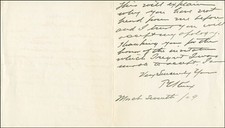 This will explain
why you have not
heard from me before
and I trust you will
accept my apology.
Thanking you for the
honor of the invitation
which I regret I was
unable to accept. I am
Very Sincerely Yours
March